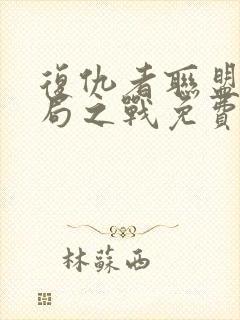 復仇者聯盟
局之戰免費
林蘇西